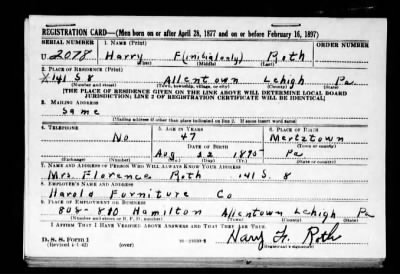 REGISTRATION CARD—(Men born on or after April 28, 1877 and on or before February 16, 1897)
SERIAL NUMBER 1. NAME (Print)
U 2078 Harry F(initial only) Roth
(First) (Middle) (Last)
2. PLACE OF RESIDENCE (Print)
141 S 8 Allentown Lehigh Pa.
(Number and street) (Town, township, village, or city) (County) (State)
[THE PLACE OF RESIDENCE GIVEN ON THE LINE ABOVE WILL DETERMINE LOCAL BOARD
JURISDICTION; LINE 2 OF REGISTRATION CERTIFICATE WILL BE IDENTICAL]
3. MAILING ADDRESS
Same
[Mailing address if other than place indicated on line 2. If same insert word same]
4. TELEPHONE 5. AGE IN YEARS 6. PLACE OF BIRTH
No 47 Mertztown
DATE OF BIRTH (Town or county)
Aug 1895 Pa
(Exchange) (Number) (Mo.) (Day) (Yr.) (State or country)
7. NAME AND ADDRESS OF PERSON WHO WILL ALWAYS KNOW YOUR ADDRESS
Mrs. Florence Roth 141 S. 8
8. EMPLOYER'S NAME AND ADDRESS
Harold Furniture Co
9. PLACE OF EMPLOYMENT OR BUSINESS
808-810 Hamilton Allentown Lehigh Pa
(Number and street or R. F. D. number) (Town) (County) (State)
I AFFIRM THAT I HAVE VERIFIED ABOVE ANSWERS AND THAT THEY ARE TRUE.
D. S. S. Form 1
(Revised 4-1-42) (over) Harry F. Roth
(Registrant's signature)